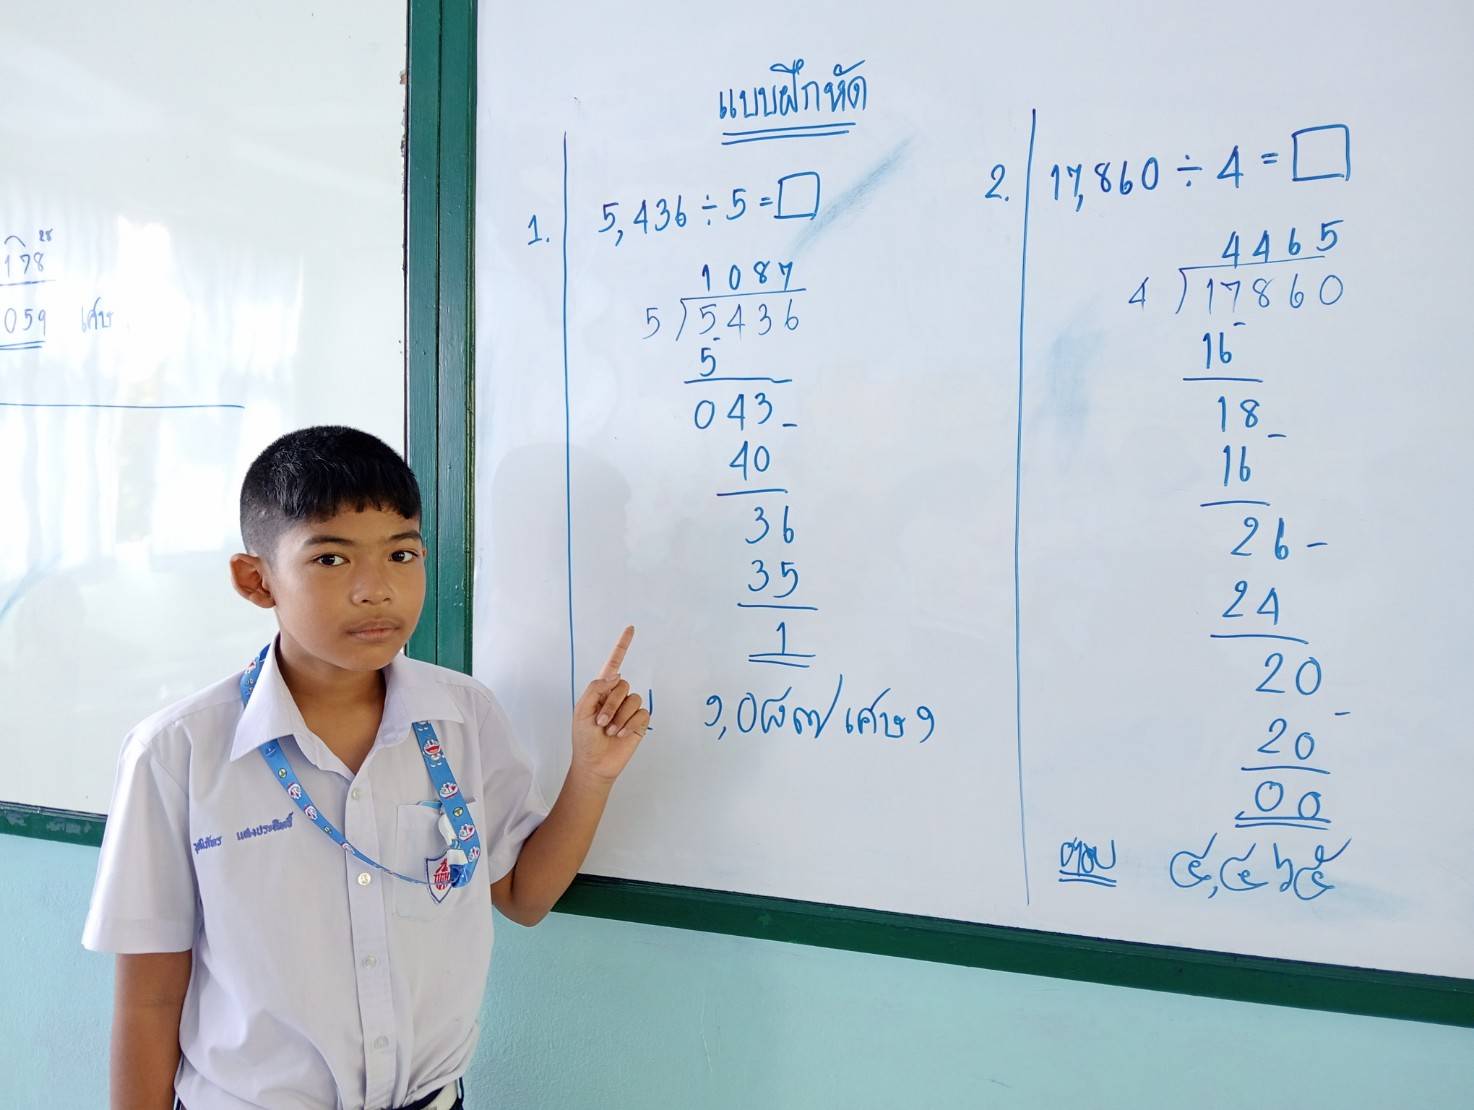 แบบฝึกหัด
1. 5,436 ÷ 5 = □
1087
5)5436
5
043
40
36
35
1
๑,๐๘๗ เศษ ๑
2. 17,860 ÷ 4 = □
4465
4)17860
16
18
16
26
24
20
20
00
ตอบ ๔,๔๖๕
178
059 เศษ